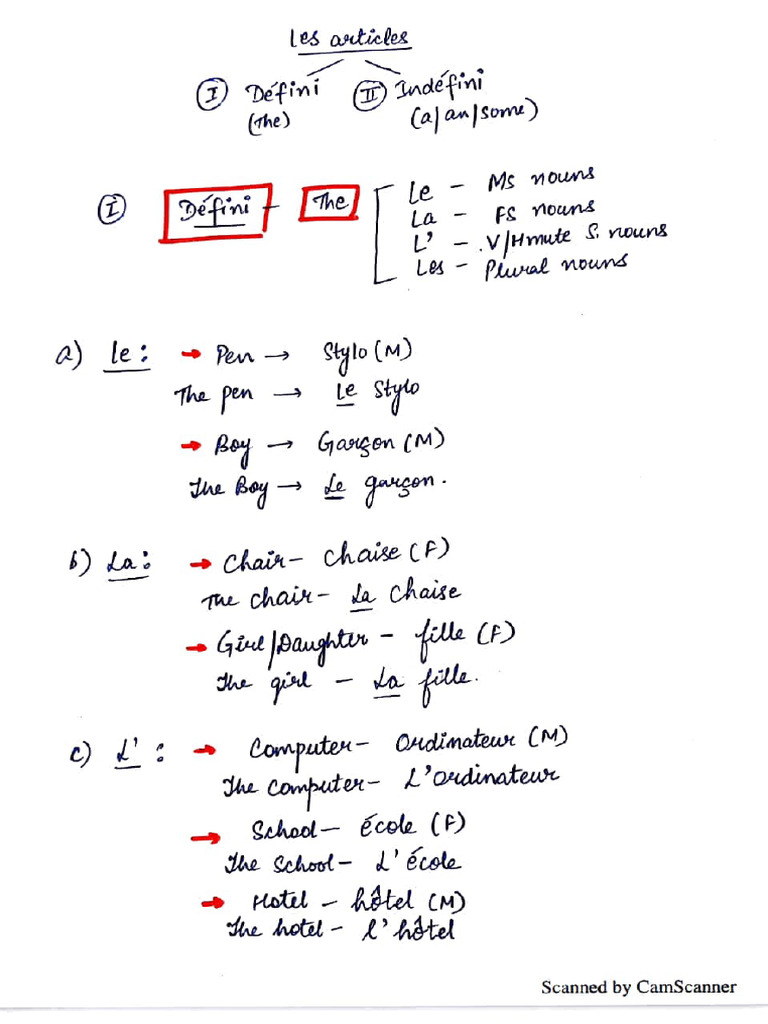 Les articles
I Défini II Indéfini
(The) (a/an/some)
I Défini - The Le - Ms nouns
La - FS nouns
L' - V/Hmute S. nouns
Les - Plural nouns
a) le: → Pen → Stylo (M)
The pen → Le stylo
→ Boy → Garçon (M)
The Boy → Le garçon.
b) La: → Chair - Chaise (F)
The chair - La chaise
→ Girl/Daughter - fille (F)
The girl - La fille.
c) L': → Computer - Ordinateur (M)
The computer - L'ordinateur
→ School - école (F)
The School - L'école
→ Hotel - hôtel (M)
The hotel - l'hôtel
Scanned by CamScanner